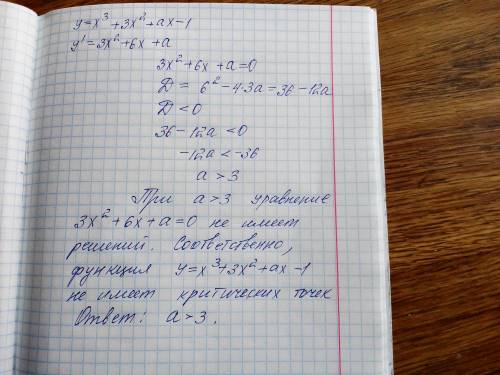 y=x³+3x²+ax-1
y'=3x²+6x+a
3x²+6x+a=0
D = 6²-4·3a=36-12a
D<0
36-12a<0
-12a<-36
a>3
При a>3 уравнение
3x²+6x+a=0 не имеет
решений. Соответственно,
функция y=x³+3x²+ax-1
не имеет критических точек
Ответ: a>3.